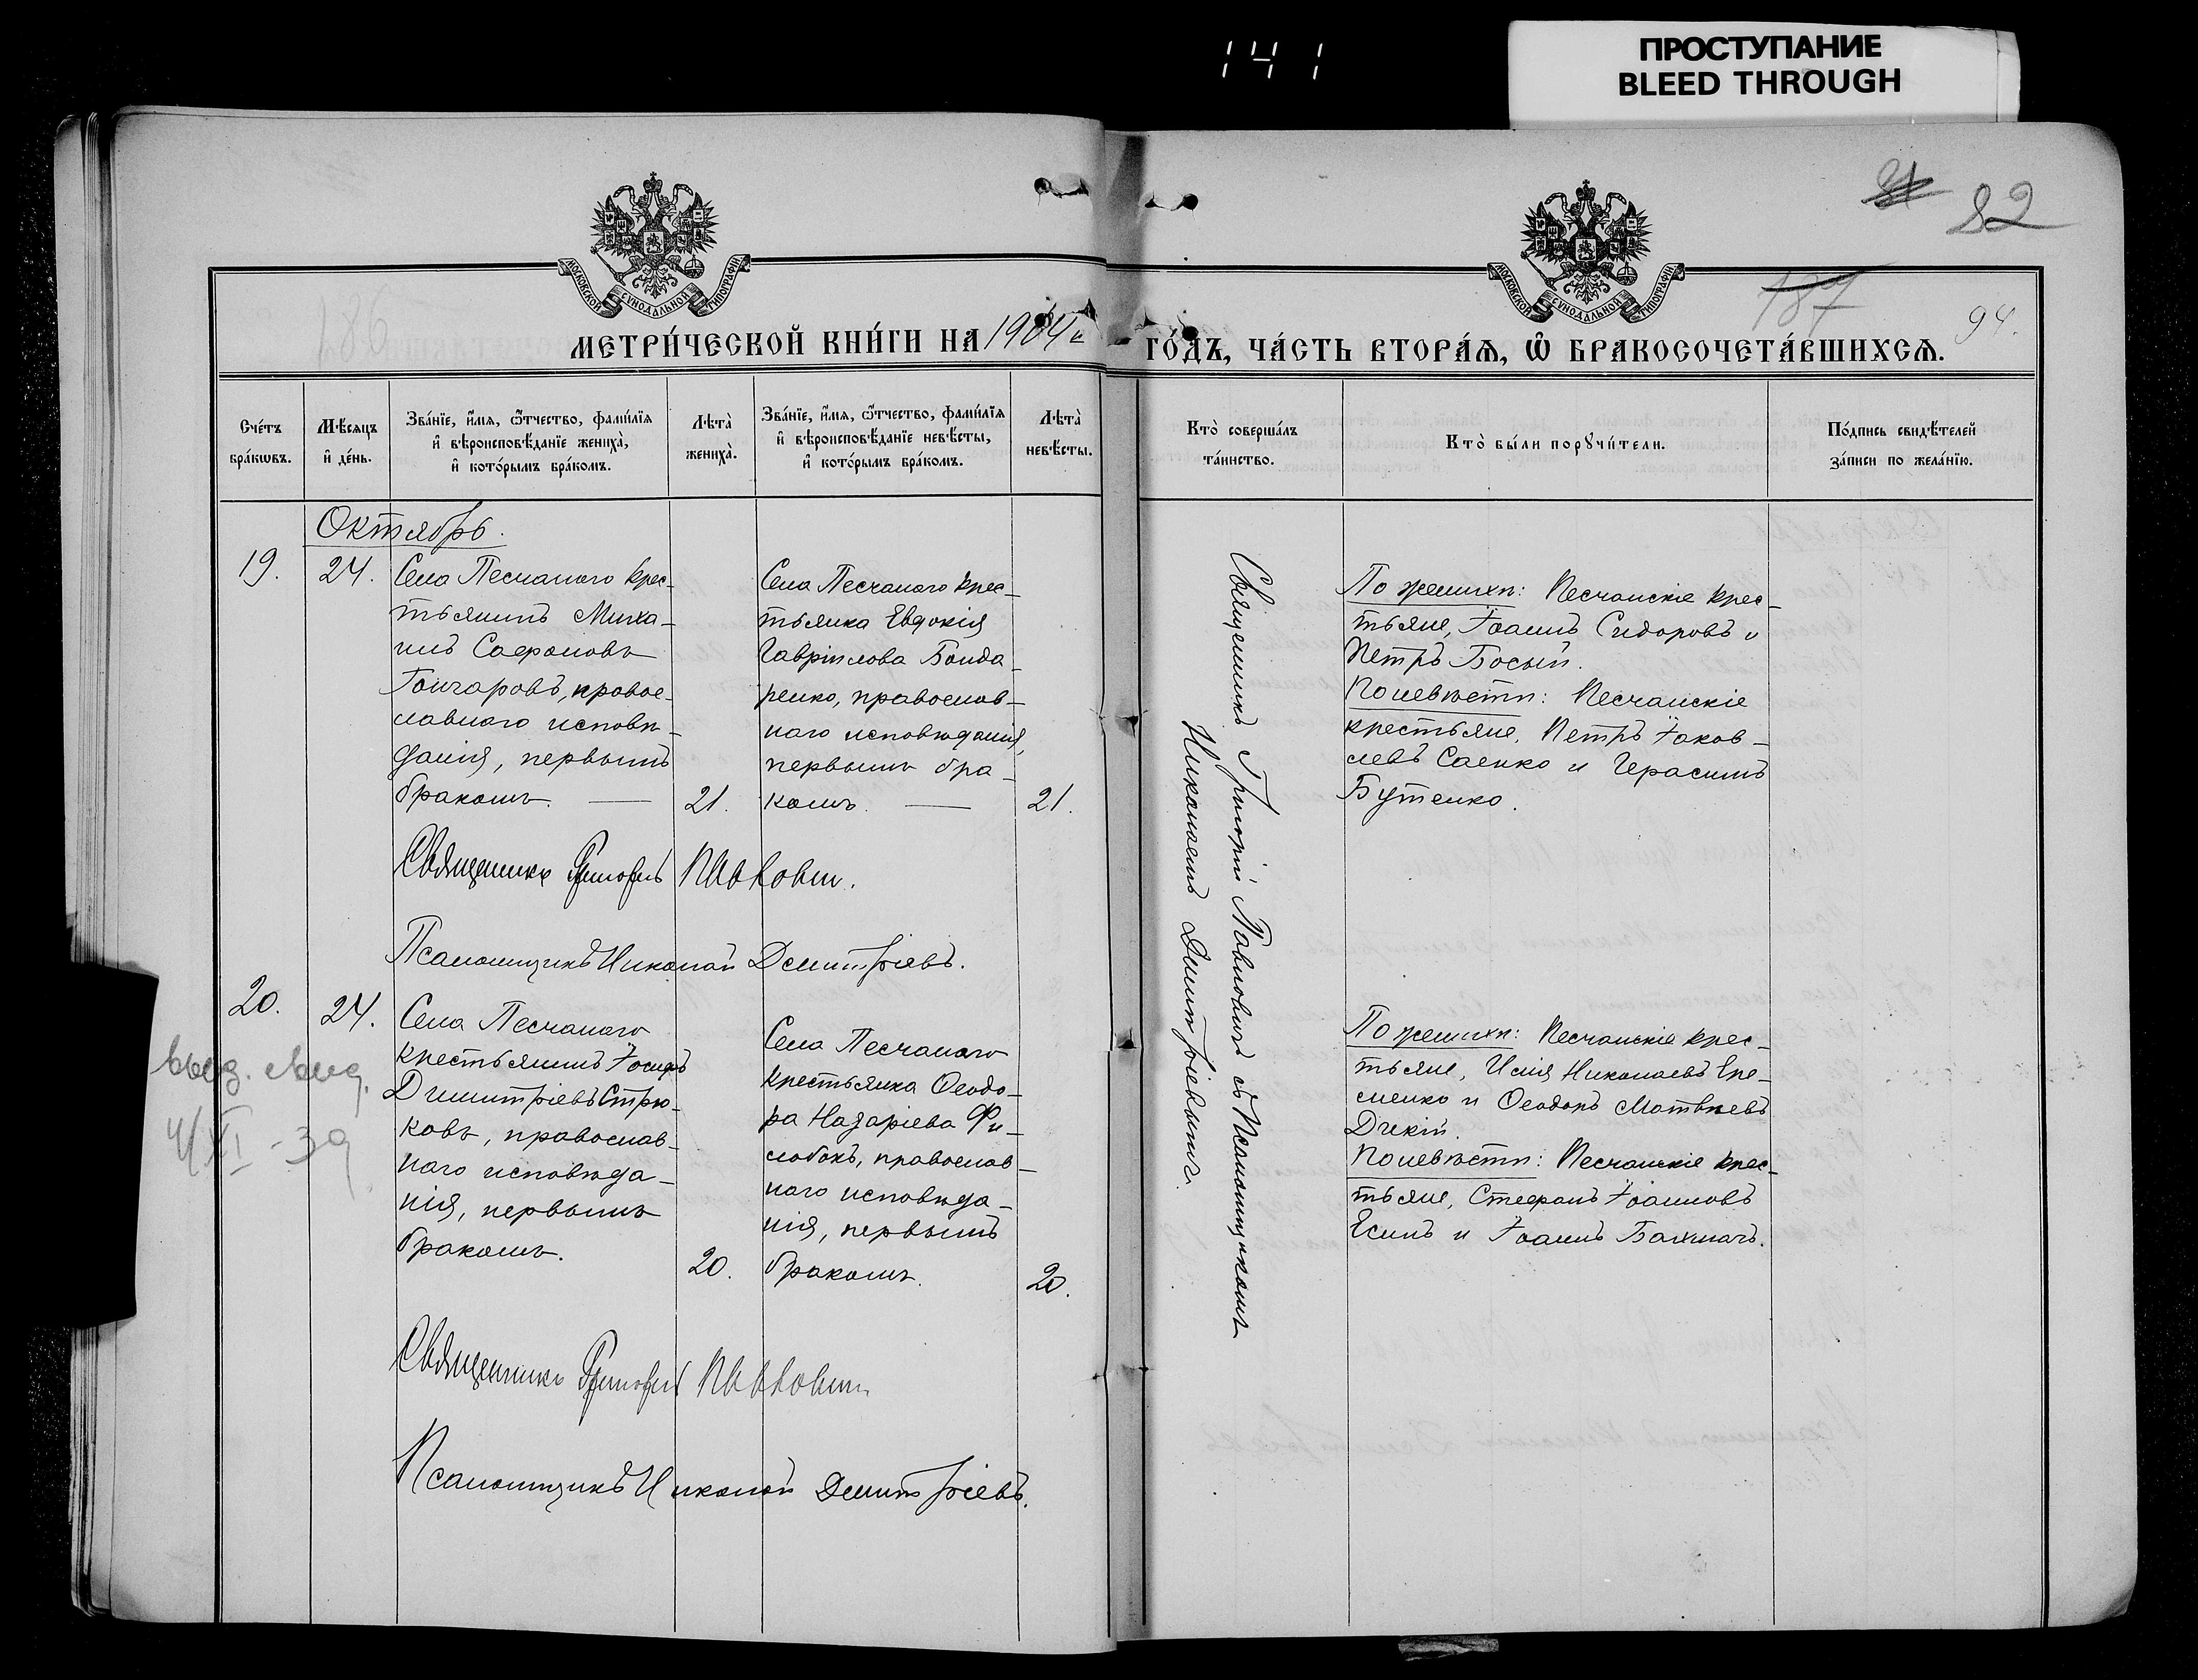 141
ПРОСТУПАНИЕ
BLEED THROUGH
82
186
187
94.
МОСКОВСКОЙ СѴНОДАЛЬНОЙ ТИПОГРАФІИ
МОСКОВСКОЙ СѴНОДАЛЬНОЙ ТИПОГРАФІИ
МЕТРИ́ЧЕСКОЙ КНИ́ГИ НА 1904й ГО́ДЪ, ЧА́СТЬ ВТОРА́Я, Ѡ БРАКОСОЧЕТА́ВШИХСЯ.
Сче́тъ
бра́кѡвъ.
Мѣ́сяцъ
и҆ де́нь.
Зва́нїе, и҆́мя, ѻ҆́тчество, фами́лїя
и҆ вѣроисповѣ́данїе женихà,
и҆ кото́рымъ бра́комъ.
Лѣ̀та
женихà.
Зва́нїе, и҆́мя, ѻ҆́тчество, фами́лїя
и҆ вѣроисповѣ́данїе невѣ́сты,
и҆ кото́рымъ бра́комъ.
Лѣ̀та
невѣ́сты.
Кто̀ соверша́лъ
та́инство.
Кто̀ бы́ли порꙋчи́тели.
По́дпись свидѣ́телей
за́писи по жела́нїю.
Октябрь.
19.
24.
Села Песчанаго крес-
тьянинъ Миха-
илъ Сафроновъ
Гончаровъ, правос-
лавнаго исповѣ-
данія, первымъ
бракомъ. —
21.
Села Песчанаго крес-
тьянка Евдокія
Гавріилова Бонда-
ренко, православ-
наго исповѣданія,
первымъ бра-
комъ. —
21.
Священникъ Григорій Павловичъ съ Псаломщикомъ
Николаемъ Димитріевымъ.
По женихѣ: Песчанскіе крес-
тьяне, Іоаннъ Сидоровъ и
Петръ Босый.
По невѣстѣ: Песчанскіе
крестьяне, Петръ Іаков-
левъ Саенко и Герасимъ
Бутенко.
Священникъ Григорій Павловичъ.
Псаломщикъ Николай Димитріевъ.
20.
24.
Села Песчанаго
крестьянинъ Іосифъ
Димитріевъ Стрю-
ковъ, православ-
наго исповѣда-
нія, первымъ
бракомъ.
20.
Села Песчанаго
крестьянка Ѳеодо-
ра Назаріева Фи-
слобокъ, православ-
наго исповѣда-
нія, первымъ
бракомъ.
20.
По женихѣ: Песчанскіе крес-
тьяне, Илія Николаевъ Ере-
менко и Ѳеодоръ Матвѣевъ
Дикій.
По невѣстѣ: Песчанскіе крес-
тьяне, Стефанъ Іоанновъ
Есипъ и Іоаннъ Бахмачъ.
выд. свид.
4/XI - 39
Священникъ Григорій Павловичъ
Псаломщикъ Николай Димитріевъ.